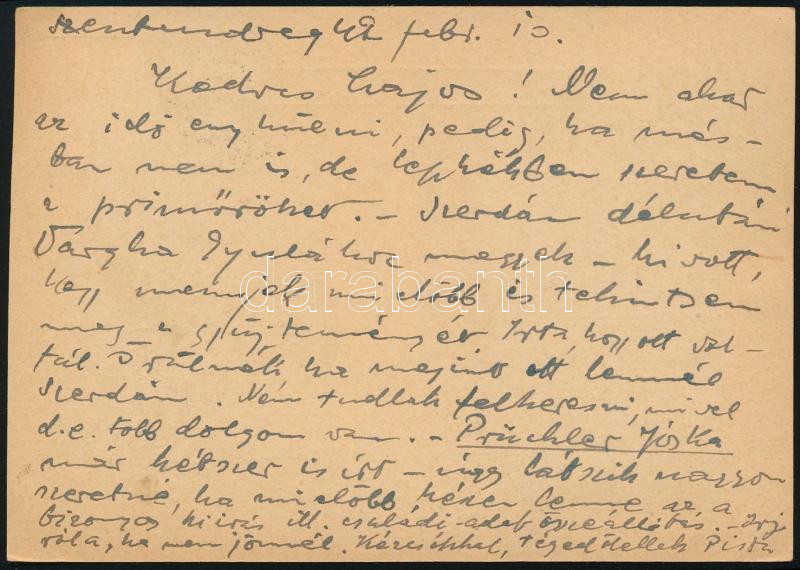 Szentendre 42 febr. 15.
Kedves Lajos! Nem akar
az idő enyhülni, pedig, ha más-
ban nem is, de lepkékben szeretem
a primőröket. - Szerdán délután
Vargha Gyulához megyek - hivott,
hogy menjek mielőbb és tekintsem
meg a gyűjteményét. Irta, hogy ott vol-
tál. Örülnék ha megint ott lennél
szerdán. Nem tudlak felkeresni, mivel
d.e. több dolgom van. - Prüchler Jóska
már kétszer is irt - úgy látszik nagyon
szeretné, ha mielőbb kézen lenne az a
bizonyos kiírás ill. családi-adat összeállitás. - Irj
róla, ha nem jönnél. Kézcsókkal, téged ölellek Pista
darabanth